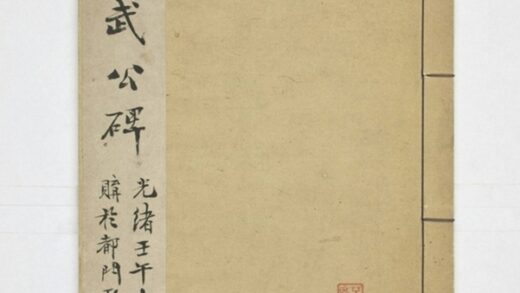 武公碑
光緒壬午
購於都門